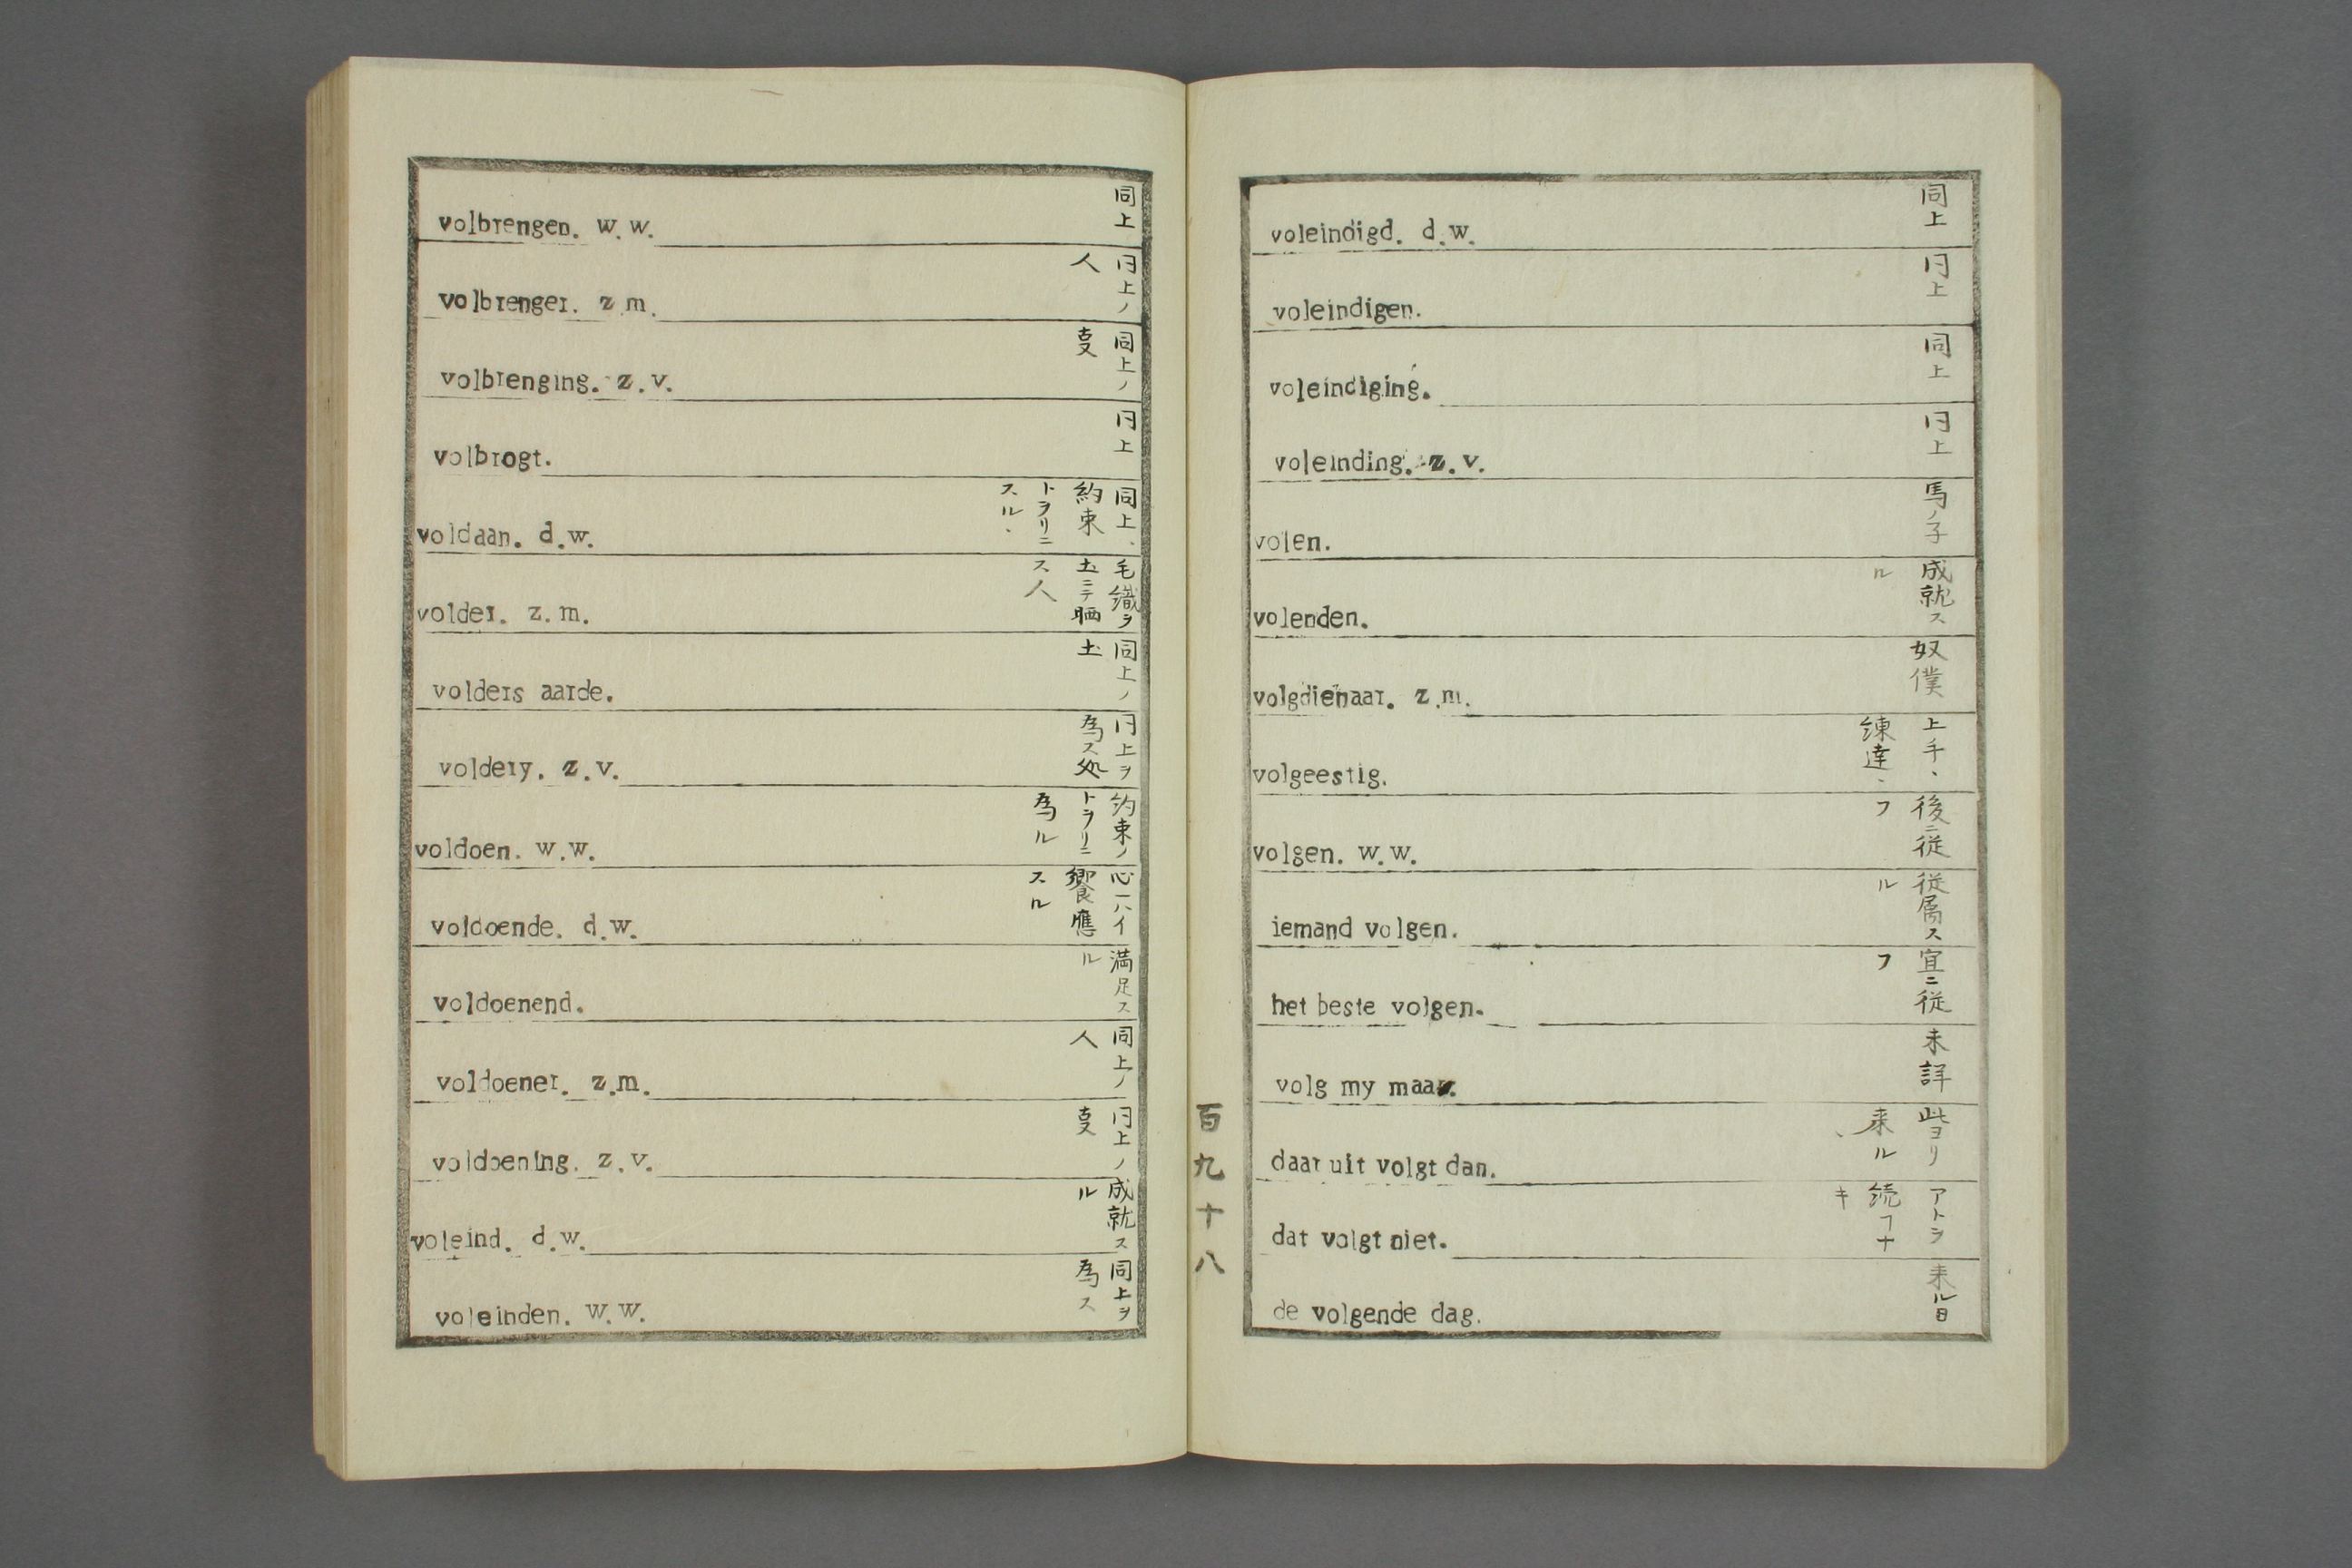 volbrengen. w.w. 同上
volbrenger. z.m. 同上ノ人
volbrenging. z.v. 同上ノ叓
volbrogt. 同上
voldaan. d.w. 同上、約束トヲリニスル、
volder. z.m. 毛織ヲ土ニテ晒ス人
volders aarde. 同上ノ土
voldery. z.v. 同上ヲ為ス処
voldoen. w.w. 約束ノトヲリニ為ル
voldoende. d.w. 心一ハイ饗應スル
voldoenend. 満足スル
voldoener. z.m. 同上ノ人
voldoening. z.v. 同上ノ叓
voleind. d.w. 成就スル
voleinden. w.w. 同上ヲ為ス
百九十八
voleindigd. d.w. 同上
voleindigen. 同上
voleindiging. 同上
voleinding. z.v. 同上
volen. 馬ノ子
volenden. 成就スル
volgdienaar. z.m. 奴僕
volgeestig. 上手、練達、
volgen. w.w. 後ニ従フ
iemand volgen. 従属スル
het beste volgen. 宜ニ従フ
volg my maar. 未詳
daar uit volgt dan. 此ヨリ来ル、
dat volgt niet. アトヲ続フナキ
de volgende dag. 来ル日